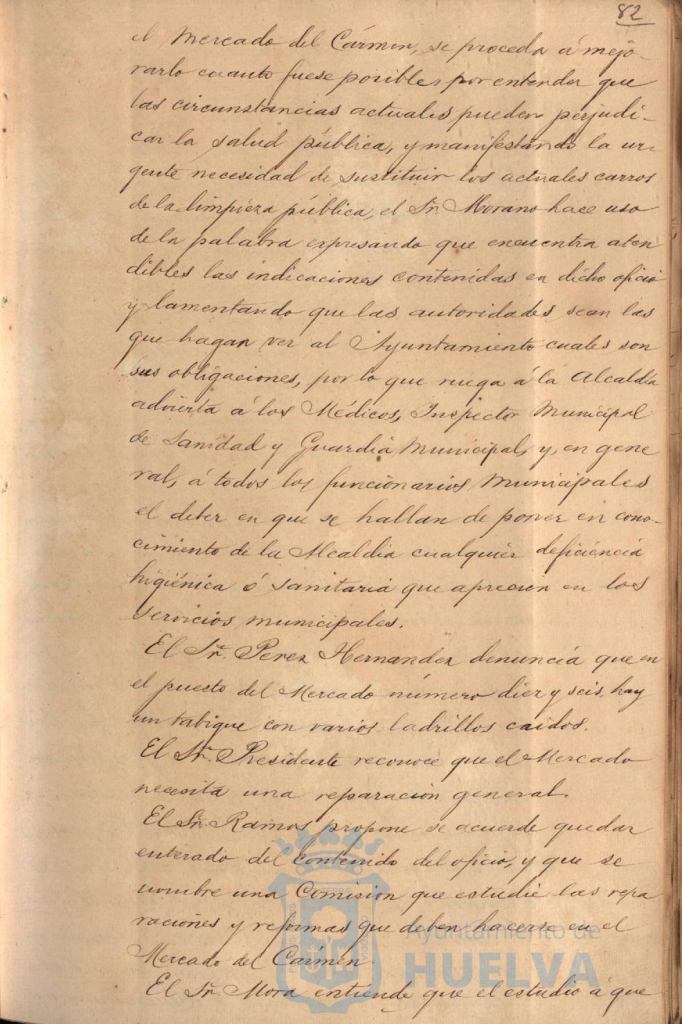 82
el Mercado del Cármen, se proceda á mejo-
rarlo cuanto fuese posible, por entender que
las circunstancias actuales pueden perjudi-
car la salud pública, y manifestando la ur-
gente necesidad de sustituir los actuales carros
de la limpieza pública, el Sr. Morano hace uso
de la palabra expresando que encuentra aten
dibles las indicaciones contenidas en dicho oficio
y lamentando que las autoridades sean las
que hagan ver al Ayuntamiento cuales son
sus obligaciones, por lo que ruega á la Alcaldía
advierta á los Médicos, Inspector Municipal
de Sanidad y Guardia Municipal, y, en gene
ral, á todos los funcionarios municipales
el deber en que se hallan de poner en cono-
cimiento de la Alcaldía cualquier deficiencia
higiénica ó sanitaria que aprecien en los
servicios municipales.
El Sr. Perez Hernandez denuncia que en
el puesto del Mercado número diez y seis, hay
un tabique con varios ladrillos caidos.
El Sr. Presidente reconoce que el Mercado
necesita una reparación general.
El Sr. Ramos propone se acuerde quedar
enterado del contenido del oficio, y que se
nombre una Comision que estudie las repa
raciones y reformas que deben hacerse en el
Mercado del Carmen.
El Sr. Mora entiende que el estudio á que
Ayuntamiento de
HUELVA